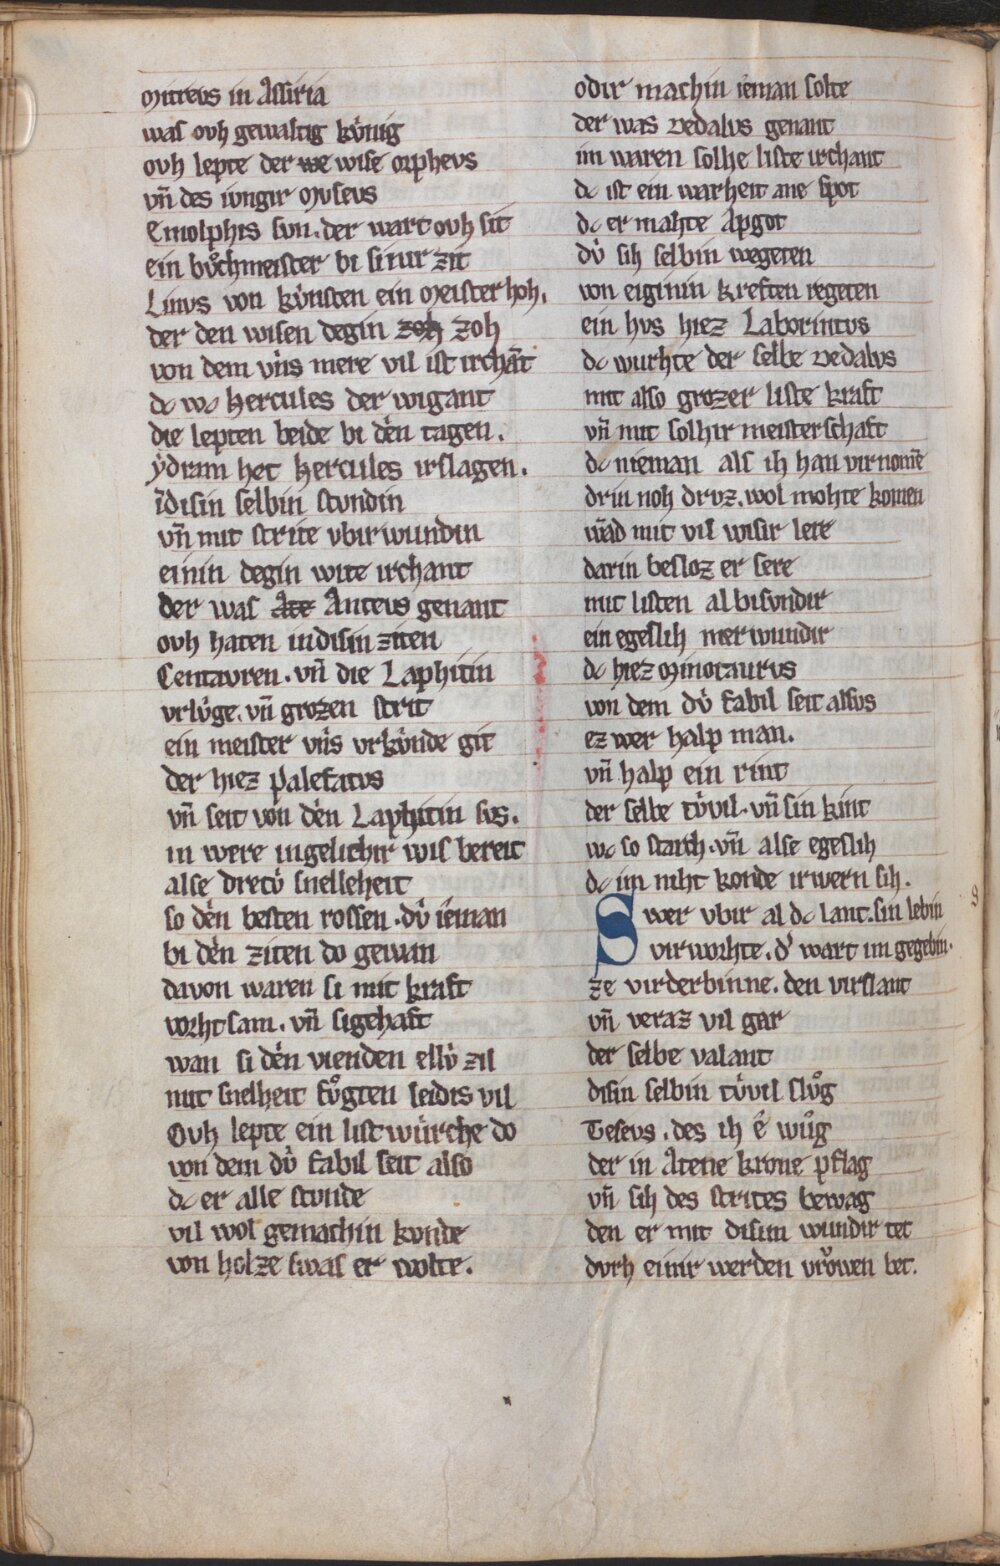 Mitreus in Assiria
was ovh gewaltig kv́nig
ovh lepte der we wise orpheus
vn̄ des iungir Museus
Emolphis svn. der wart ovh sit
ein bv̊chmeister bi sinir zit
Linus von kv́nsten ein Meister hoh.
der den wisen degin zoh zoh
von dem vńs mere vil ist irchāt
dc wc Hercules der wigant
die lepten beide bi dén tagen.
ydram het Hercules irslagen.
īdisin selbin stvndin
vn̄ mit strite vbirwundin
einin degin wite irchant
der was Ate Anteus genant
ovh haten in disin ziten
Centavren. vn̄ die Laphitin
vrlv́ge. vn̄ grozen strit
ein meister vńs vrkv́nde git
der hiez Palefatus
vn̄ seit von dén Laphitin svs.
in were ingelichir wis bereit
alse dretv́ snelleheit
so dén besten rossen. dv́ iéman
bi dén ziten do gewan
davon waren si mit kraft
vorhtsam. vn̄ sigehaft
wan si dén vienden ellv́ zil
mit snelheit fv̊gten leidis vil
Ovh lepte ein listwúrche do
von dem dv́ fabil seit also
dc er alle stvnde
vil wol gemachin konde
von holze swas er wolte.
odir machin iéman solte
der was Dedalus genant
im waren solhe liste irchant
dc ist ein warheit ane spot
dc er mahte Apgot
dv́ sih selbin wegeten
von eiginin kreften regeten
ein hvs hiez Laborintvs
dc wurhte der selbe Dedalus
mit also grozer liste kraft
vn̄ mit solhir meisterschaft
dc nieman als ih han virnomē
driu noh drvz. wol mohte komen
wād mit vil wisir lere
darin besloz er sere
mit listen albisvndir
ein egeslih merwundir
dc hiez Minotaurus
von dem dv́ fabil seit alsvs
ez wer halp man.
vn̄ halp ein rint
der selbe tv́vil. vn̄ sin kint
wc so starch. vn̄ alse egeslih
dc im niht konde irwern sih.
Swer vbir al dc lant. sin lebin
virworhte. d' wart im gegebin.
ze virderbinne. den virslant
vn̄ veraz vil gar
der selbe valant
disin selbin tv́vil slv̊g
Teseus. des ih é wv̊g
der in Atene krone pflag
vn̄ sih des strites bewag
den er mit disim wundir tet
dvrh einir werden vrŏwen bet.